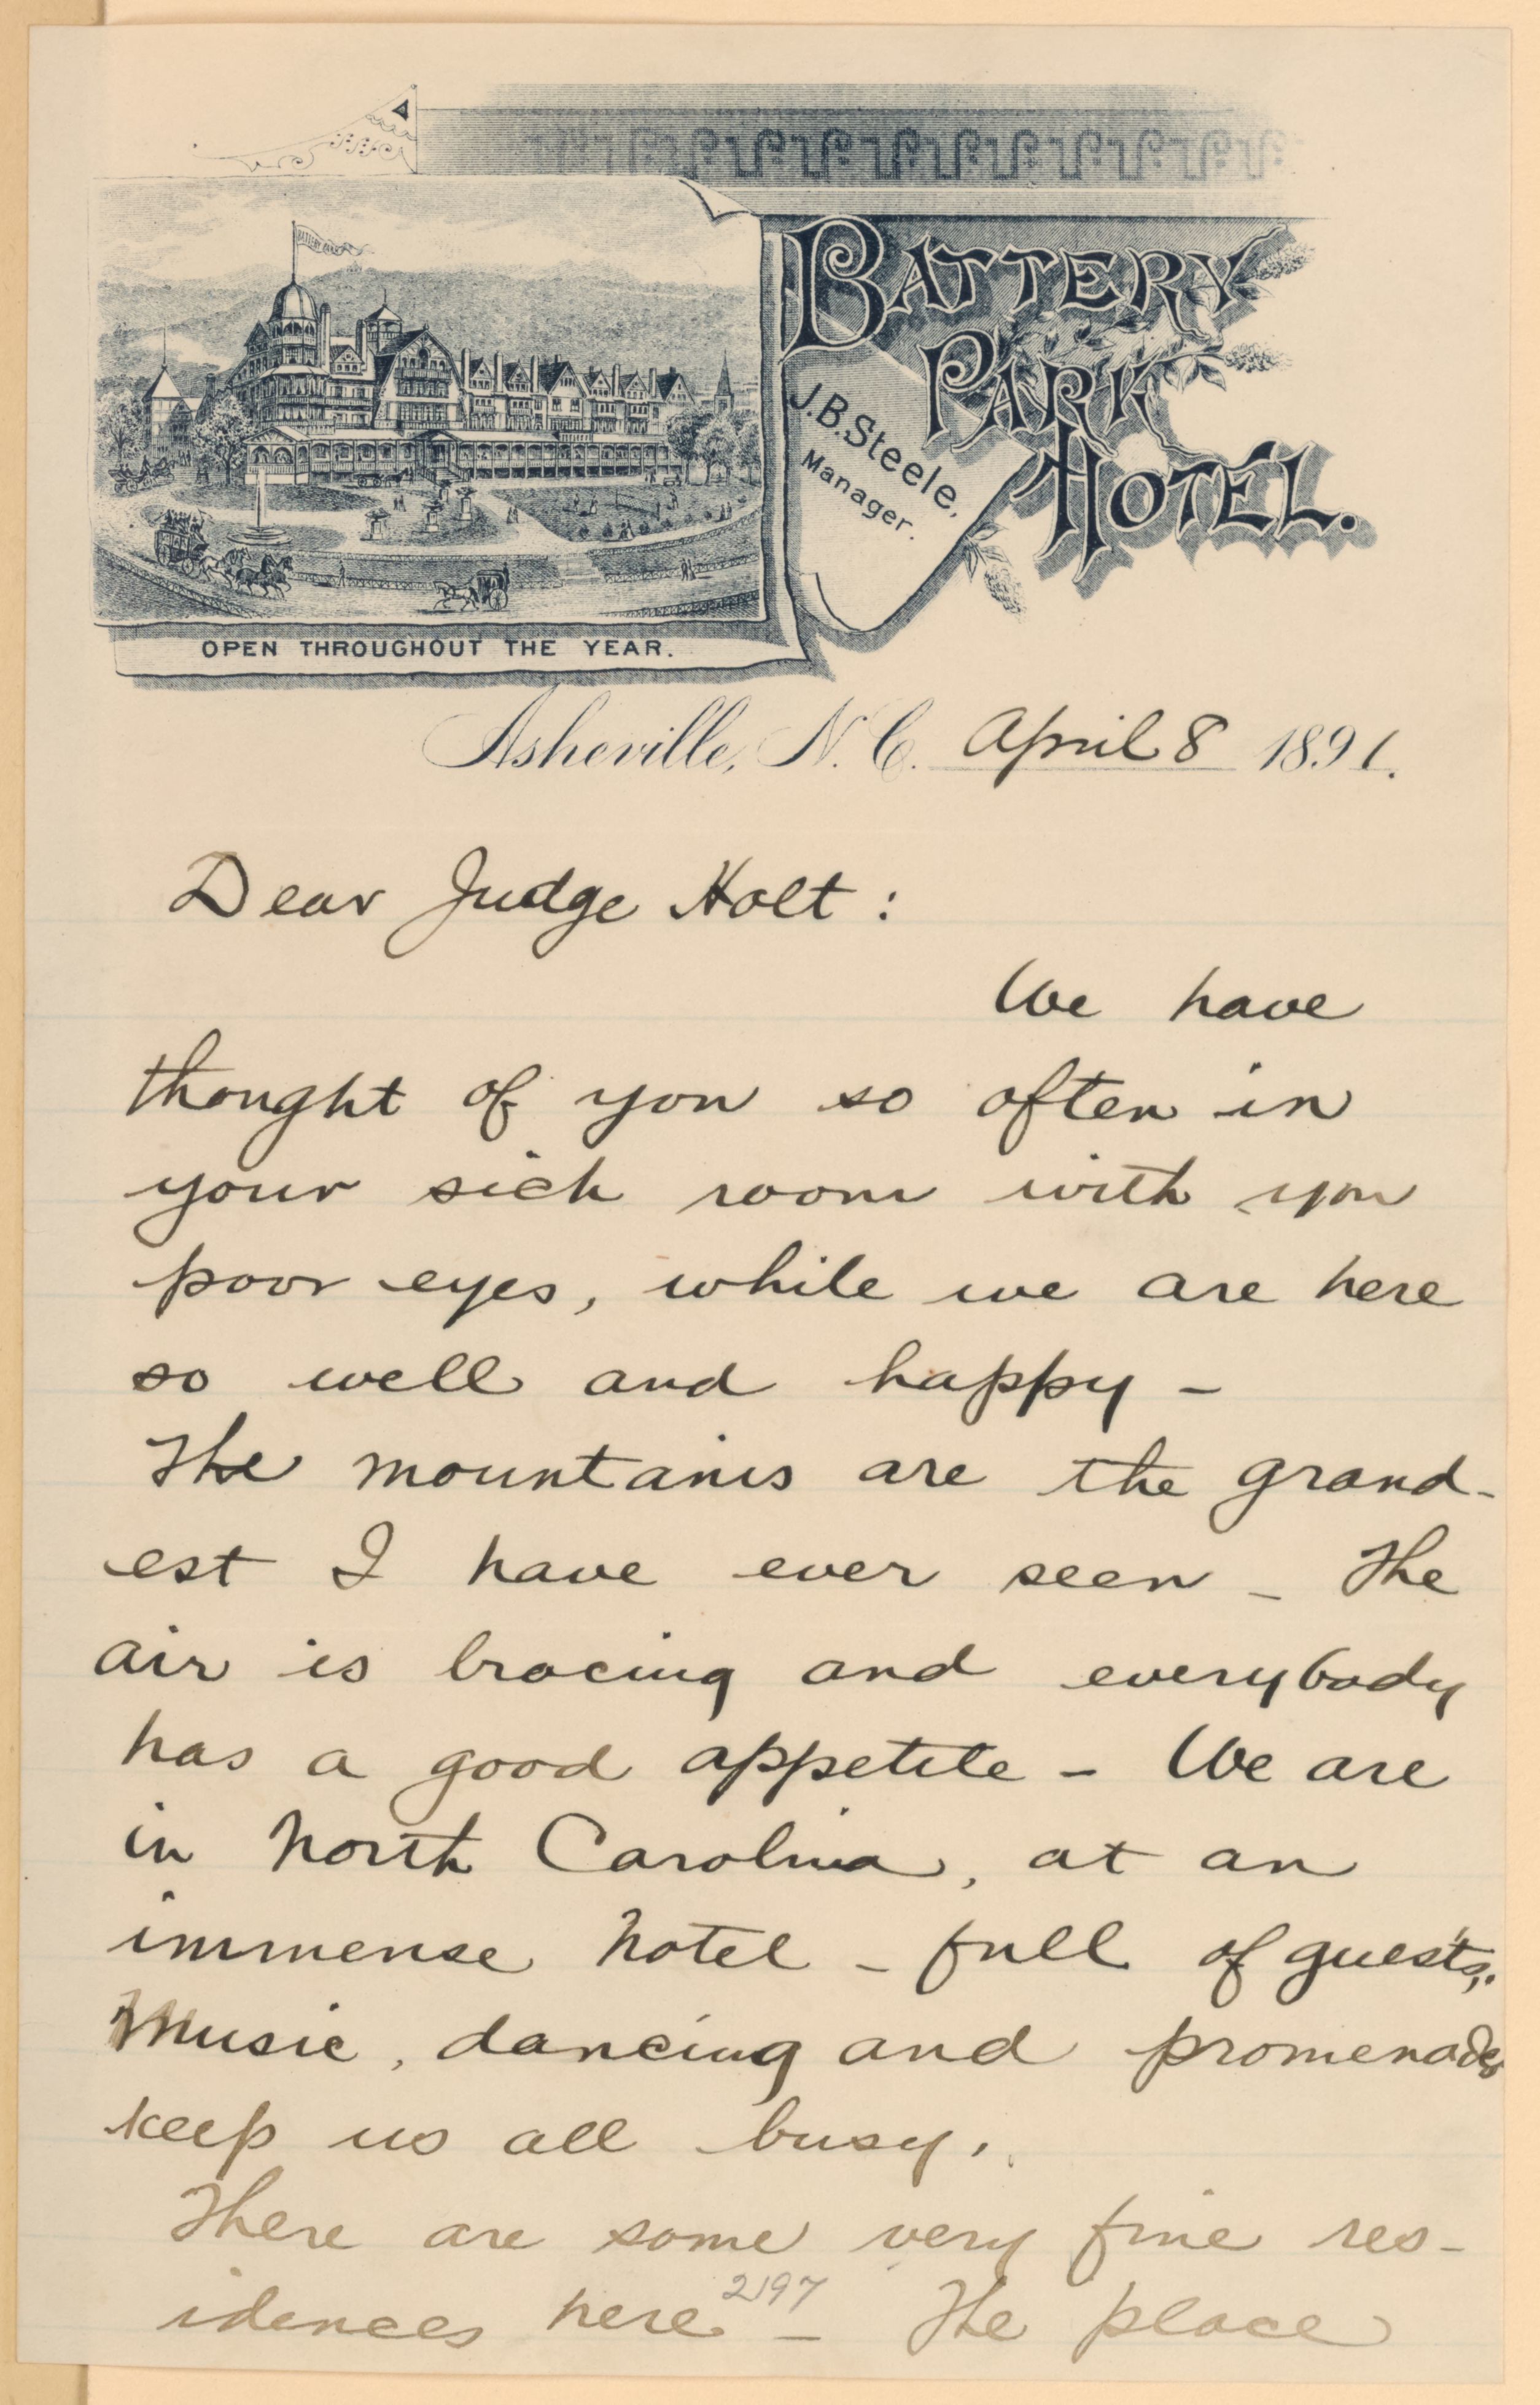 BATTERY PARK
BATTERY
PARK
HOTEL.
J.B. Steele,
Manager.
OPEN THROUGHOUT THE YEAR.
Asheville, N. C. April 8 1891.
Dear Judge Holt:
We have
thought of you so often in
your sick room with you
poor eyes, while we are here
so well and happy –
The mountains are the grand-
est I have ever seen – The
air is bracing and everybody
has a good appetite – We are
in North Carolina, at an
immense hotel – full of guests.
Music, dancing and promenades
keep us all busy.
There are some very fine res-
idences here – The place
2197